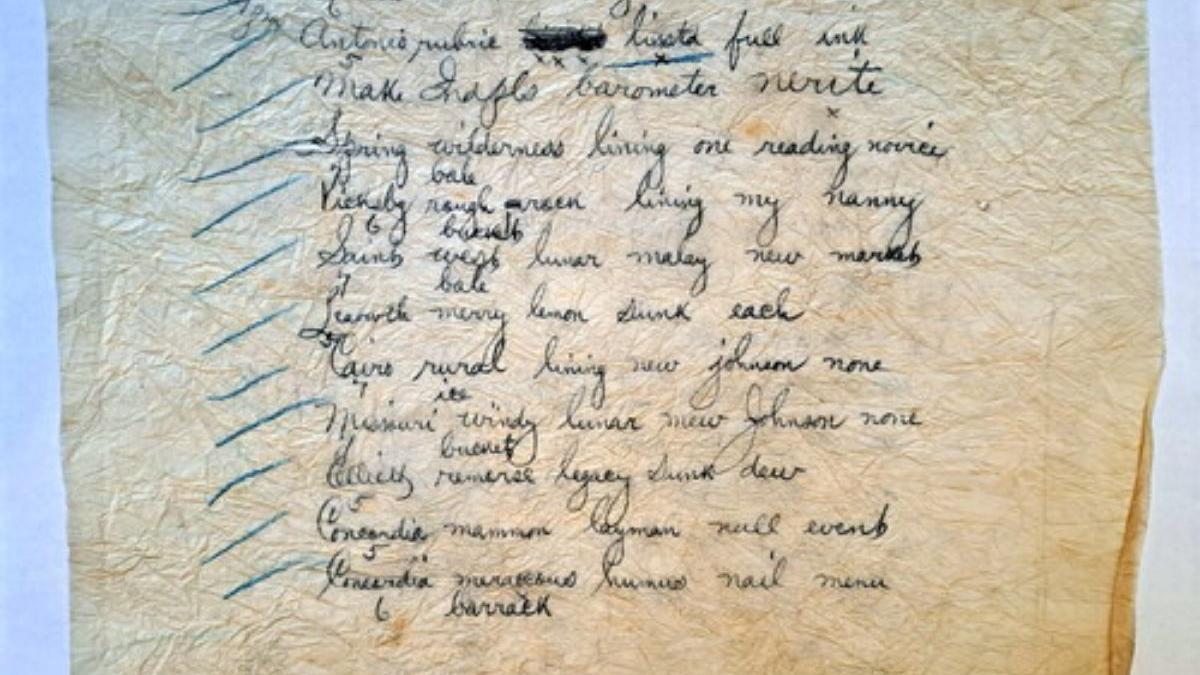 Antonio rubric lissta full ink
Make Indpls barometer nerite
Spring wilderness lining one reading novice
7 bale
Vicksbg rough rack lining my nanny
6 bucket
Saint west lunar malay new market
7 bale
Leavwth merry lemon sunk each
Cairo rural lining new johnson none
7 ice
Missouri windy lunar mew Johnson none
bucket
Celieth remorse legacy sunk dew
5
Concordia mammon layman null event
5
Concordia meraccous humus nail menu
6 barrack